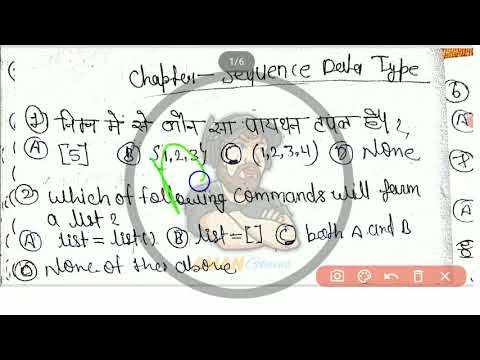 1/6
Chapter - Sequence Data Type
① निम्न में से कौन सा पायथन टपल है? 
Ⓐ [5] Ⓑ {1,2,3} Ⓒ (1,2,3,4) Ⓓ None
② which of following commands will form
a list ?
Ⓐ list = list() Ⓑ list = [] Ⓒ both A and B
Ⓓ None of ther above